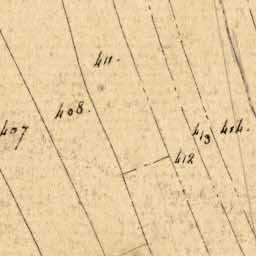 411.
408.
407
413
414.
412